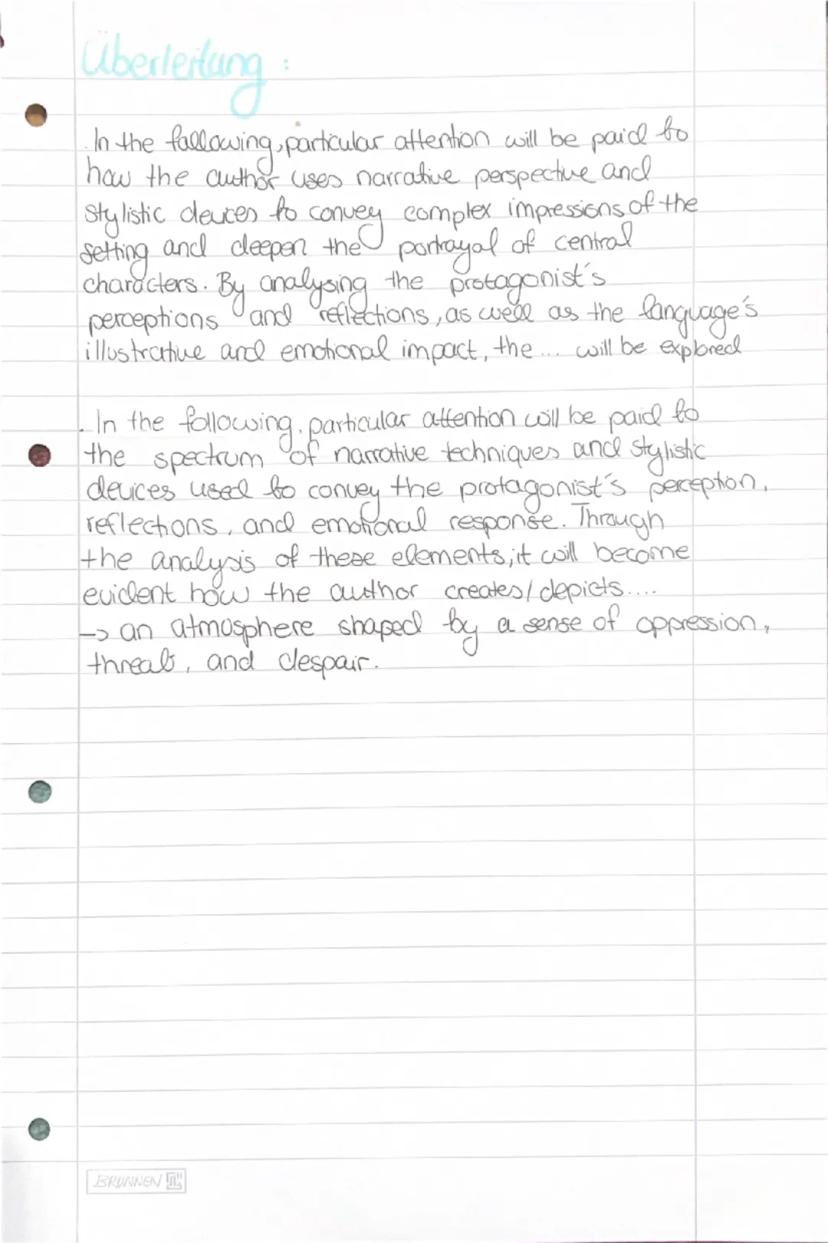 Überleitung :
. In the following, particular attention will be paid to
how the author uses narrative perspective and
stylistic devices to convey complex impressions of the
setting and deepen the portrayal of central
characters. By analysing the protagonist's
perceptions and reflections, as well as the language's
illustrative and emotional impact, the ... will be explored
. In the following, particular attention will be paid to
the spectrum of narrative techniques and stylistic
devices used to convey the protagonist's perception,
reflections, and emotional response. Through
the analysis of these elements, it will become
evident how the author creates/depicts....
-> an atmosphere shaped by a sense of oppression,
threat, and despair.
BRUNNEN